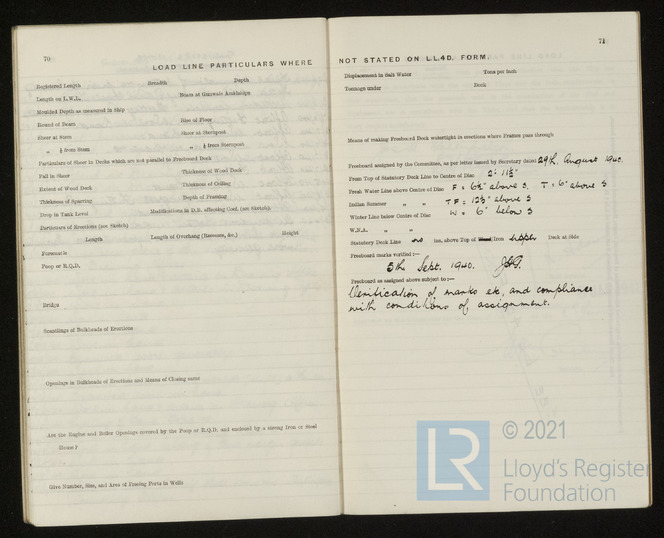 70
LOAD LINE PARTICULARS WHERE
Registered Length Breadth Depth
Length on L.W.L. Beam at Gunwale Amidships
Moulded Depth as measured in Ship
Round of Beam Rise of Floor
Sheer at Stem Sheer at Sternpost
„ ⅛ from Stem „ ⅛ from Sternpost
Particulars of Sheer in Decks which are not parallel to Freeboard Deck
Fall in Sheer Thickness of Wood Deck
Extent of Wood Deck Thickness of Ceiling
Thickness of Sparring Depth of Framing
Drop in Tank Level Modifications in D.B. affecting Coef. (see Sketch).
Particulars of Erections (see Sketch)
Length Length of Overhang (Recesses, &c.) Height
Forecastle
Poop or R.Q.D.
Bridge
Scantlings of Bulkheads of Erections
Openings in Bulkheads of Erections and Means of Closing same
Are the Engine and Boiler Openings covered by the Poop or R.Q.D. and enclosed by a strong Iron or Steel
House?
Give Number, Size, and Area of Freeing Ports in Wells
71
NOT STATED ON LL.4D. FORM.
Displacement in Salt Water Tons per Inch
Tonnage under Deck
Means of making Freeboard Deck watertight in erections where Frames pass through
Freeboard assigned by the Committee, as per letter issued by Secretary dated 29th. August 1940.
From Top of Statutory Deck Line to Centre of Disc 2'. 11½"
Fresh Water Line above Centre of Disc F = 6½" above S. T = 6" above S
Indian Summer „ „ TF = 12½" above S
Winter Line below Centre of Disc W = 6" below S
W.N.A. „ „
Statutory Deck Line ins. above Top of Iron upper Deck at Side
Freeboard marks verified :—
5th Sept. 1940.
Freeboard as assigned above subject to :—
Verification of marks etc. and compliance
with conditions of assignment.
LR © 2021
Lloyd's Register
Foundation